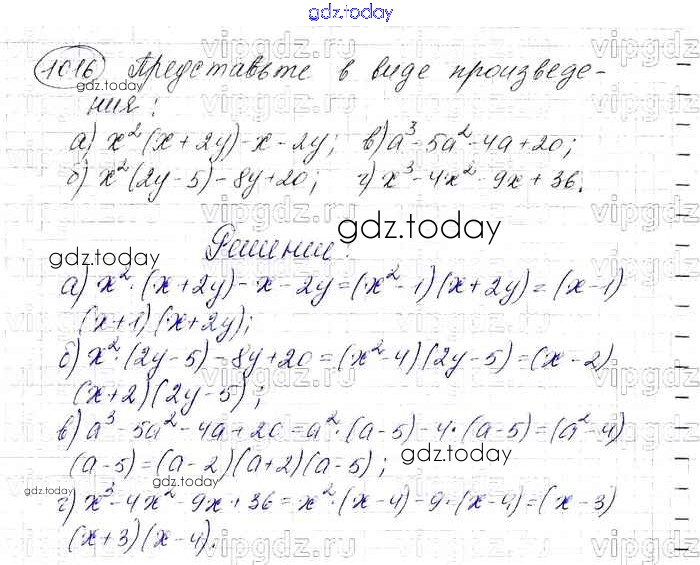 gdz.today
1016 Представьте в виде произведе-
ния:
а) x²(x+2y)-x-2y; в) a³-5a²-4a+20;
б) x²(2y-5)-8y+20; г) x³-4x²-9x+36.
gdz.today
Решение:
gdz.today
gdz.today
а) x²·(x+2y)-x-2y=(x²-1)(x+2y)=(x-1)
(x+1)(x+2y);
б) x²·(2y-5)-8y+20=(x²-4)(2y-5)=(x-2)
(x+2)(2y-5);
в) a³-5a²-4a+20=a²·(a-5)-4·(a-5)=(a²-4)
(a-5)=(a-2)(a+2)(a-5);
gdz.today
г) x³-4x²-9x+36=x²·(x-4)-9·(x-4)=(x-3)
(x+3)(x-4).
gdz.today
vipgdz.ru